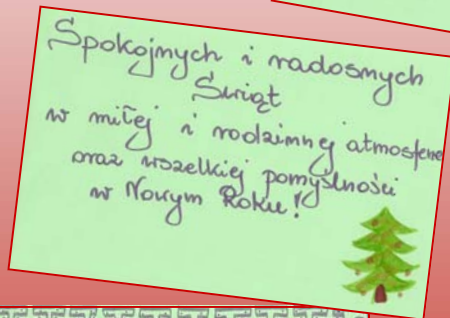 Spokojnych i radosnych
Świąt
w miłej i rodzinnej atmosferze
oraz wszelkiej pomyślności
w Nowym Roku!